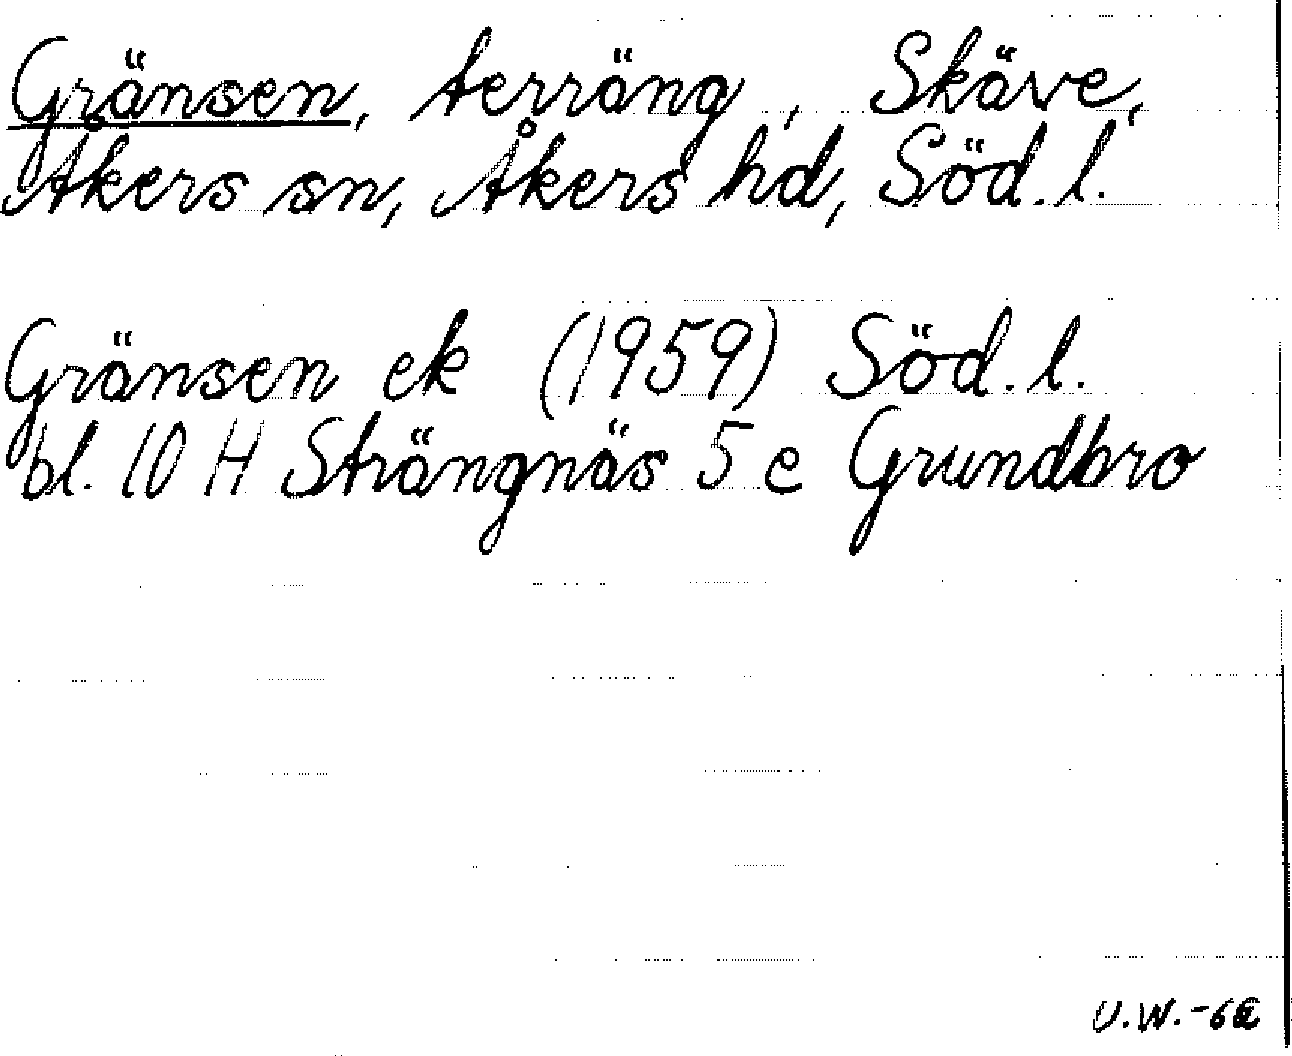 Gränsen, terräng, Skäve,
Åkers sn, Åkers hd, Söd. l.
Gränsen ek (1959) Söd. l.
bl. 10 H Strängnäs 5 e Grundbro
U.W.